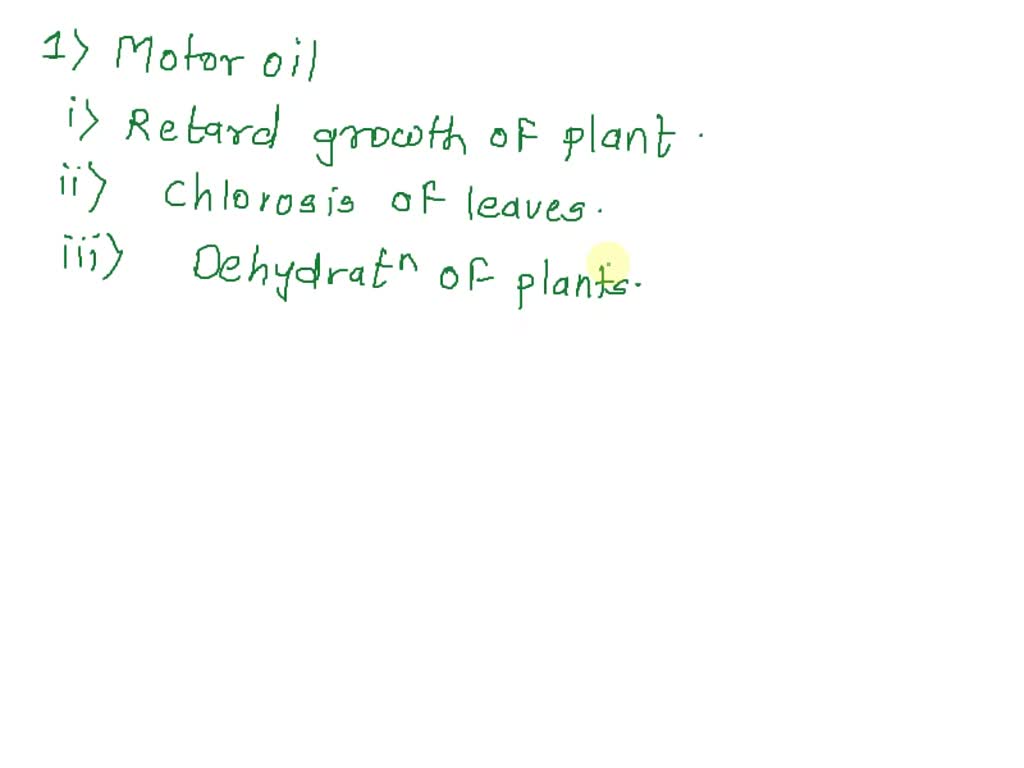 1> Motor oil
i> Retard growth of plant.
ii> Chlorosis of leaves.
iii> Dehydratⁿ of plants.